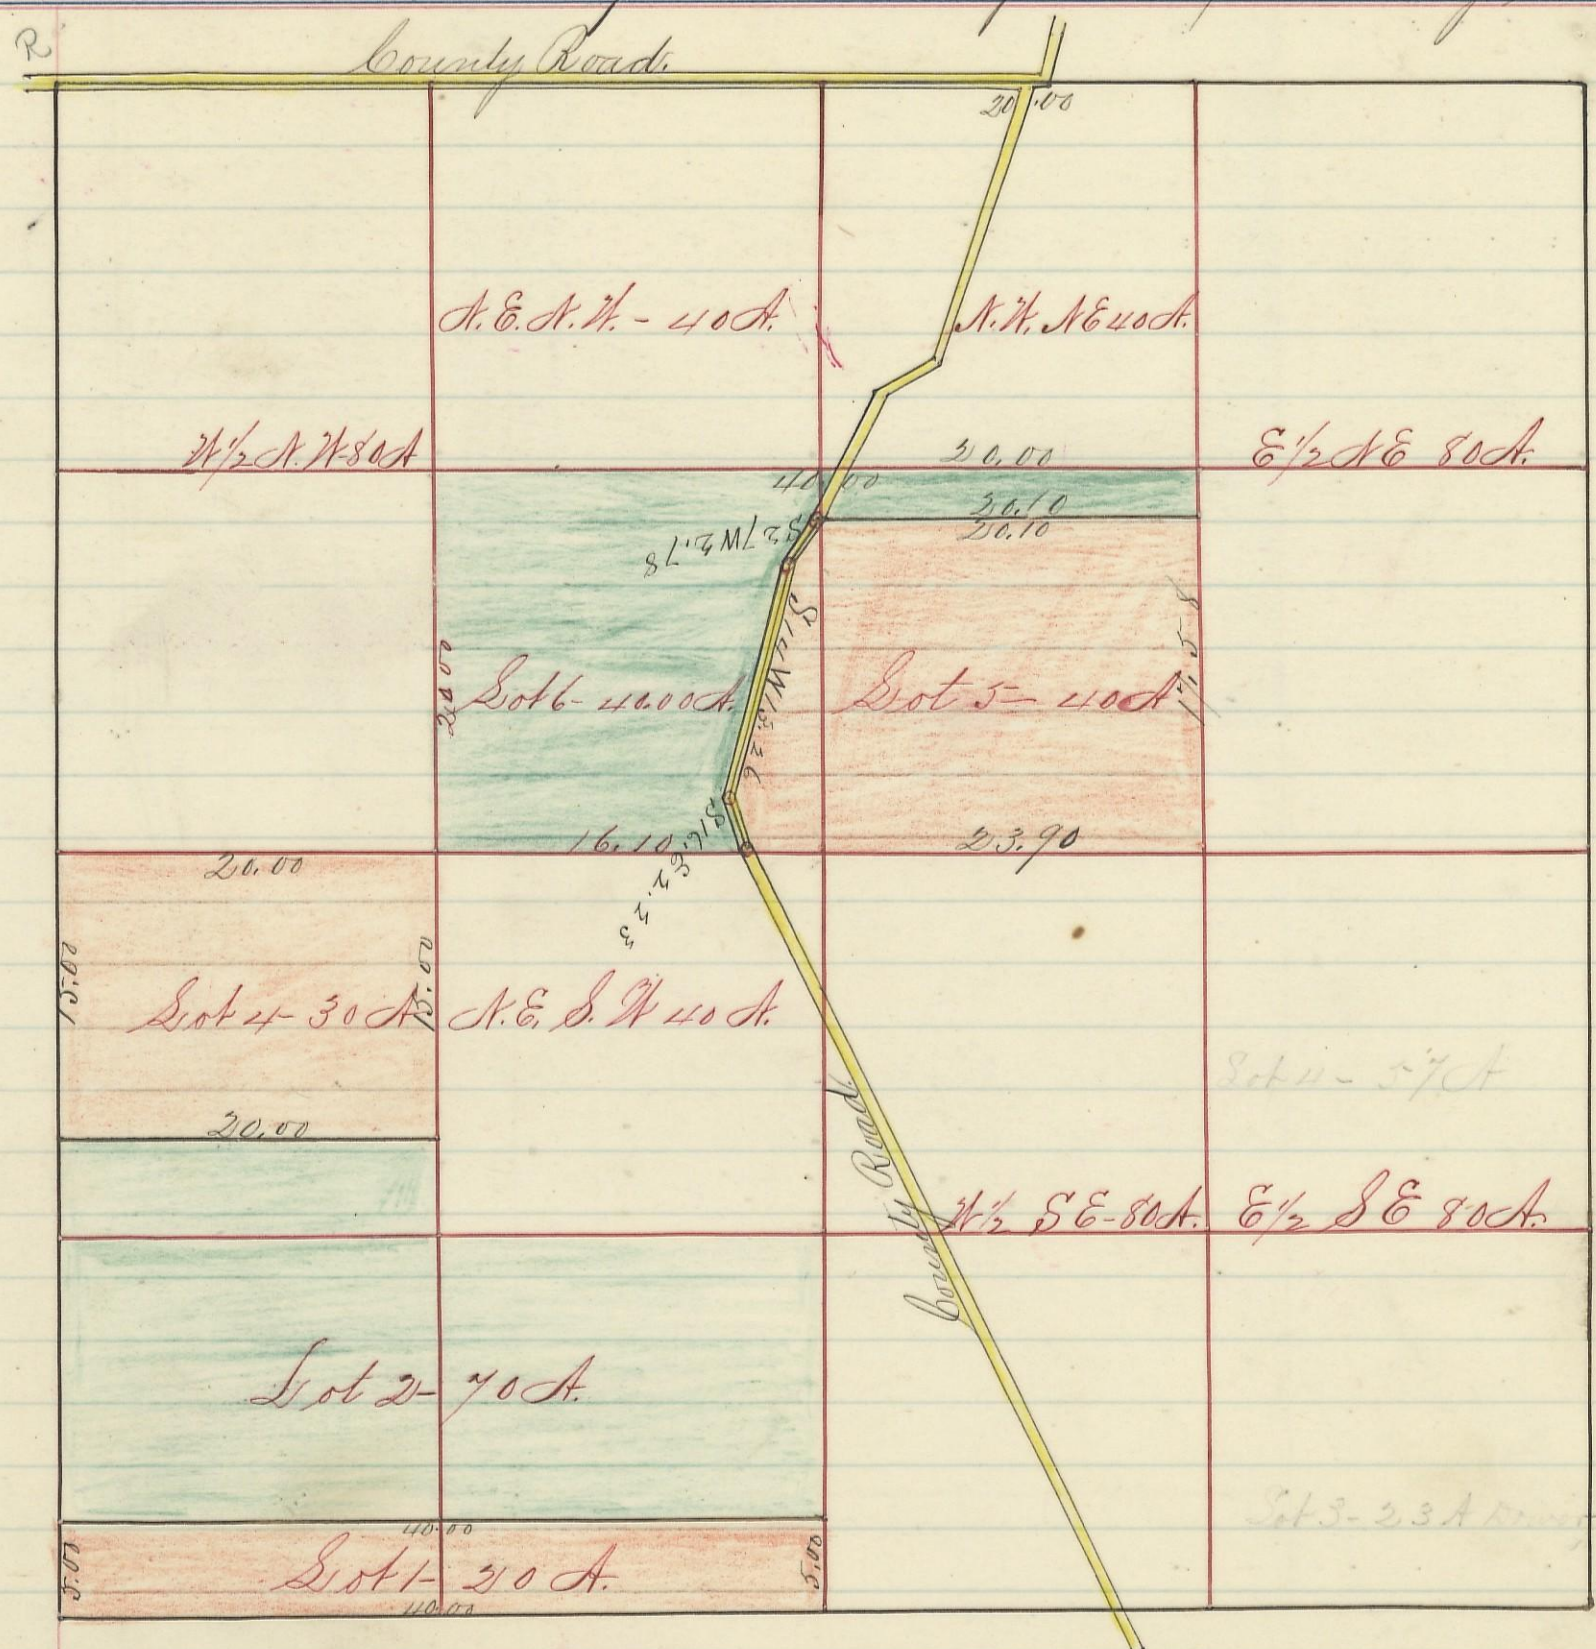 R
County Road.
20.00
N.E. N.W. - 40 A.
N.W. NE 40 A.
W 1/2 N.W-80A
E 1/2 NE 80A.
20.00
40 00
20.10
20.10
S 27 W 2.78
S 14 W 13.26
17.58
20.00
Lot 6- 40.00 A.
Lot 5- 40 A
16.10
23.90
S 16 E 2.23
20.00
15.00
15.00
Lot 4- 30 A
N.E. S.W 40 A.
Lot 4- 57 A
20.00
County Road.
W 1/2 SE-80A.
E 1/2 SE 80A.
Lot 2- 70 A.
Lot 3- 23 A
40.00
5.00
5.00
Lot 1- 20 A.
40.00